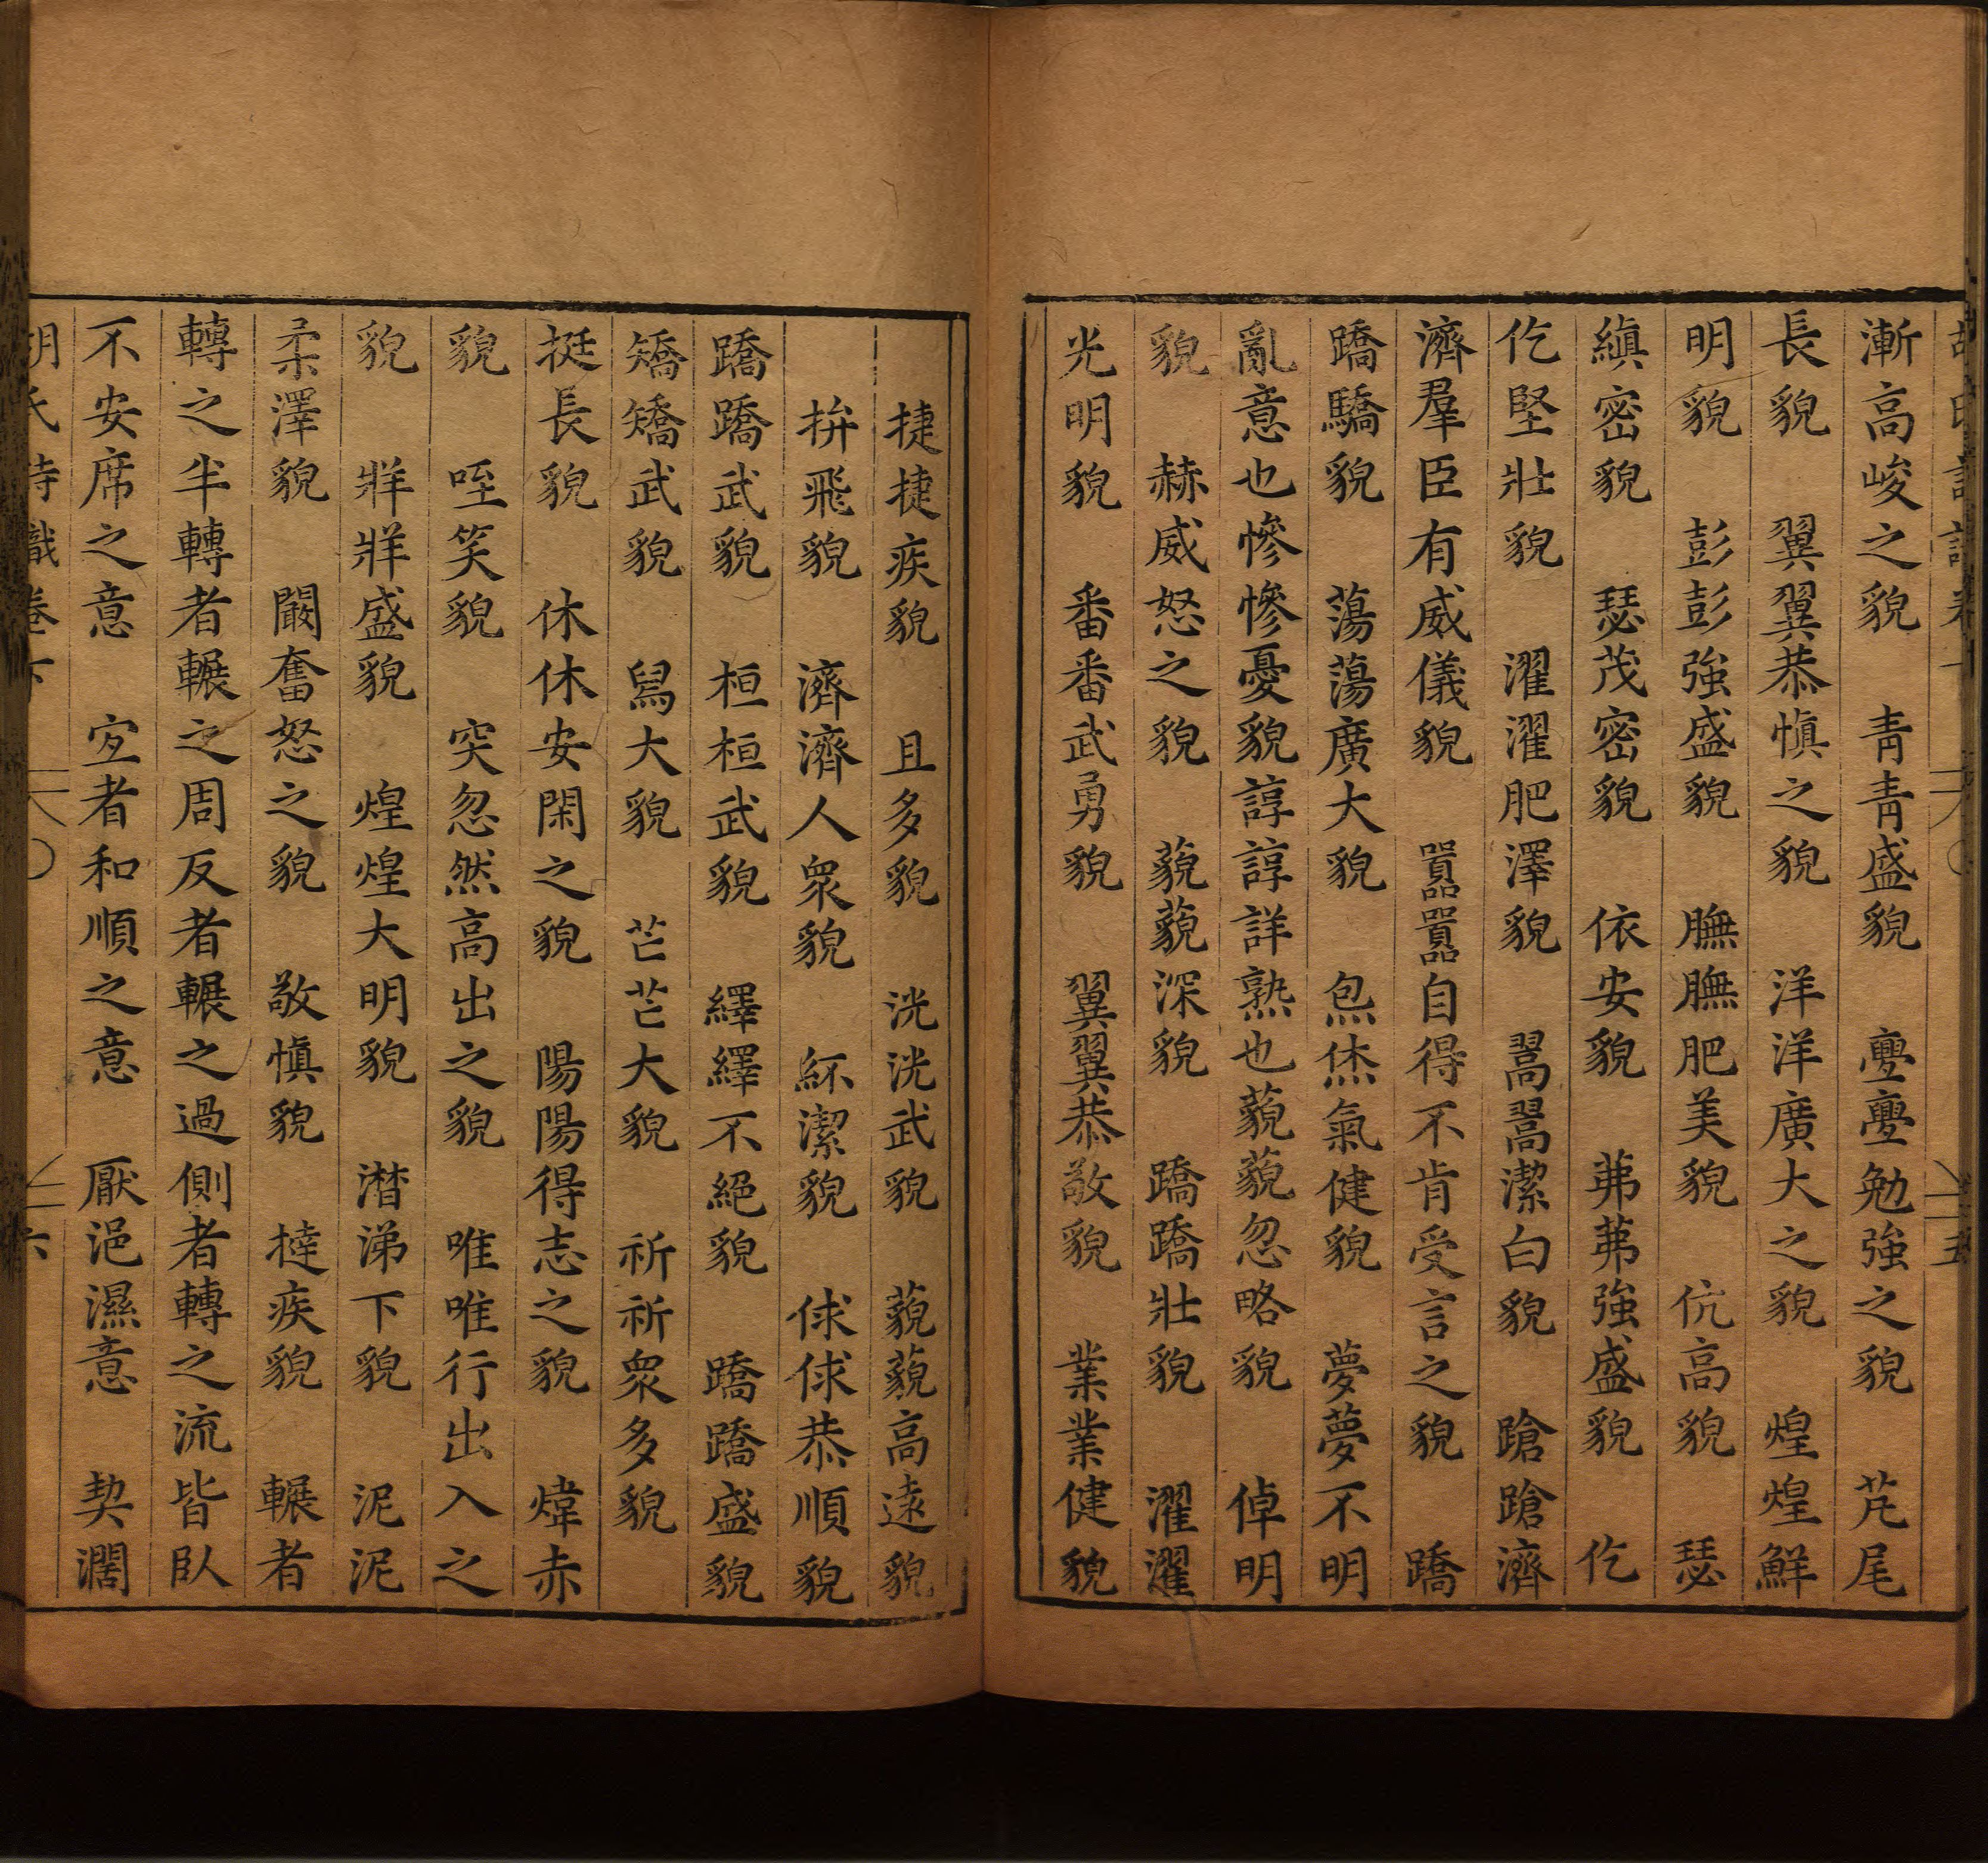 漸高峻之貌　青青盛貌　亹亹勉強之貌　芃尾
長貌　翼翼恭慎之貌　洋洋廣大之貌　煌煌鮮
明貌　彭彭強盛貌　膴膴肥美貌　伉高貌　瑟
縝密貌　瑟茂密貌　依安貌　茀茀強盛貌　仡
仡堅壯貌　濯濯肥澤貌　翯翯潔白貌　蹌蹌濟
濟羣臣有威儀貌　嚻嚻自得不肯受言之貌　蹻
蹻驕貌　蕩蕩廣大貌　炰烋氣健貌　夢夢不明
亂意也慘慘憂貌諄諄詳熟也藐藐忽略貌　倬明
貌　赫威怒之貌　藐藐深貌　蹻蹻壯貌　濯濯
光明貌　番番武勇貌　翼翼恭敬貌　業業健貌
捷捷疾貌　且多貌　洸洸武貌　藐藐高遠貌
拚飛貌　濟濟人衆貌　紑潔貌　俅俅恭順貌
蹻蹻武貌　桓桓武貌　繹繹不絕貌　蹻蹻盛貌
矯矯武貌　舄大貌　芒芒大貌　祈祈衆多貌
挺長貌　休休安閑之貌　陽陽得志之貌　煒赤
貌　咥笑貌　突忽然高出之貌　唯唯行出入之
貌　牂牂盛貌　煌煌大明貌　潸涕下貌　泥泥
柔澤貌　闞奮怒之貌　敬慎貌　撻疾貌　輾者
轉之半轉者輾之周反者輾之過側者轉之流皆臥
不安席之意　宜者和順之意　厭浥濕意　契濶